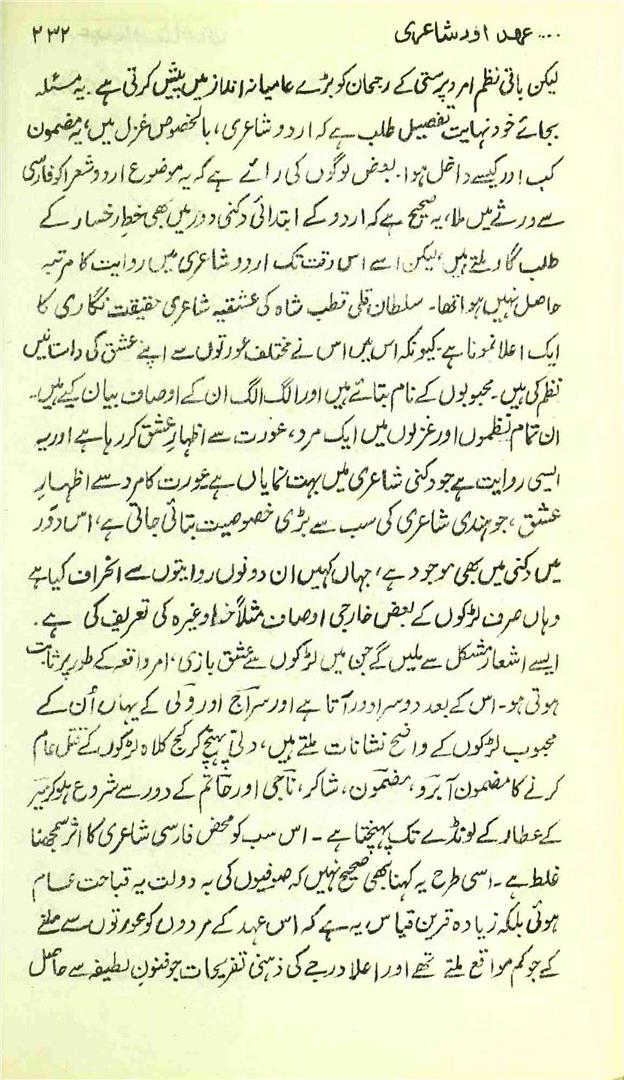 .... عہد اور شاعری ۲۳۲
لیکن باقی نظم امرد پرستی کے رجحان کو بڑے عامیانہ انداز میں پیش کرتی ہے۔ یہ مسئلہ
بجائے خود نہایت تفصیل طلب ہے کہ اردو شاعری، بالخصوص غزل میں، یہ مضمون
کب اور کیسے داخل ہوا۔ بعض لوگوں کی رائے ہے کہ یہ موضوع اردو شعرا کو فارسی
سے ورثے میں ملا، یہ صحیح ہے کہ اردو کے ابتدائی دکنی دور میں بھی خط و رخسار کے
طلب گار ملتے ہیں، لیکن اسے اس وقت تک اردو شاعری میں روایت کا مرتبہ
حاصل نہیں ہوا تھا۔ سلطان قلی قطب شاہ کی عشقیہ شاعری حقیقت نگاری کا
ایک اعلا نمونا ہے۔ کیونکہ اس میں اس نے مختلف عورتوں سے اپنے عشق کی داستانیں
نظم کی ہیں۔ محبوبوں کے نام بتائے ہیں اور الگ الگ ان کے اوصاف بیان کیے ہیں۔
ان تمام نظموں اور غزلوں میں ایک مرد، عورت سے اظہارِ عشق کر رہا ہے اور یہ
ایسی روایت ہے جو دکنی شاعری میں بہت نمایاں ہے عورت کا مرد سے اظہارِ
عشق، جو ہندی شاعری کی سب سے بڑی خصوصیت بتائی جاتی ہے، اس دَور
میں دکنی میں بھی موجود ہے، جہاں کہیں ان دونوں روایتوں سے انحراف کیا ہے
وہاں صرف لڑکوں کے بعض خارجی اوصاف مثلاً خط وغیرہ کی تعریف کی ہے۔
ایسے اشعار مشکل سے ملیں گے جن میں لڑکوں سے عشق بازی، امر واقعہ کے طور پر ثابت
ہوتی ہو۔ اس کے بعد دوسرا دور آتا ہے اور سراج اور ولی کے یہاں اُن کے
محبوب لڑکوں کے واضح نشانات ملتے ہیں، دلّی پہنچ کر کج کلاہ لڑکوں کے قتل عام
کرنے کا مضمون آبرو، مضمون، شاکر، ناجی اور حاتم کے دور سے شروع ہو کر میر
کے عطار کے لونڈے تک پہنچتا ہے۔ اس سب کو محض فارسی شاعری کا اثر سمجھنا
غلط ہے۔ اسی طرح یہ کہنا بھی صحیح نہیں کہ صوفیوں کی بہ دولت یہ قباحت عام
ہوئی بلکہ زیادہ قرین قیاس یہ ہے کہ اس عہد کے مردوں کو عورتوں سے ملنے
کے جو کم مواقع ملتے تھے اور اعلا درجے کی ذہنی تفریحات جو فنونِ لطیفہ سے حاصل